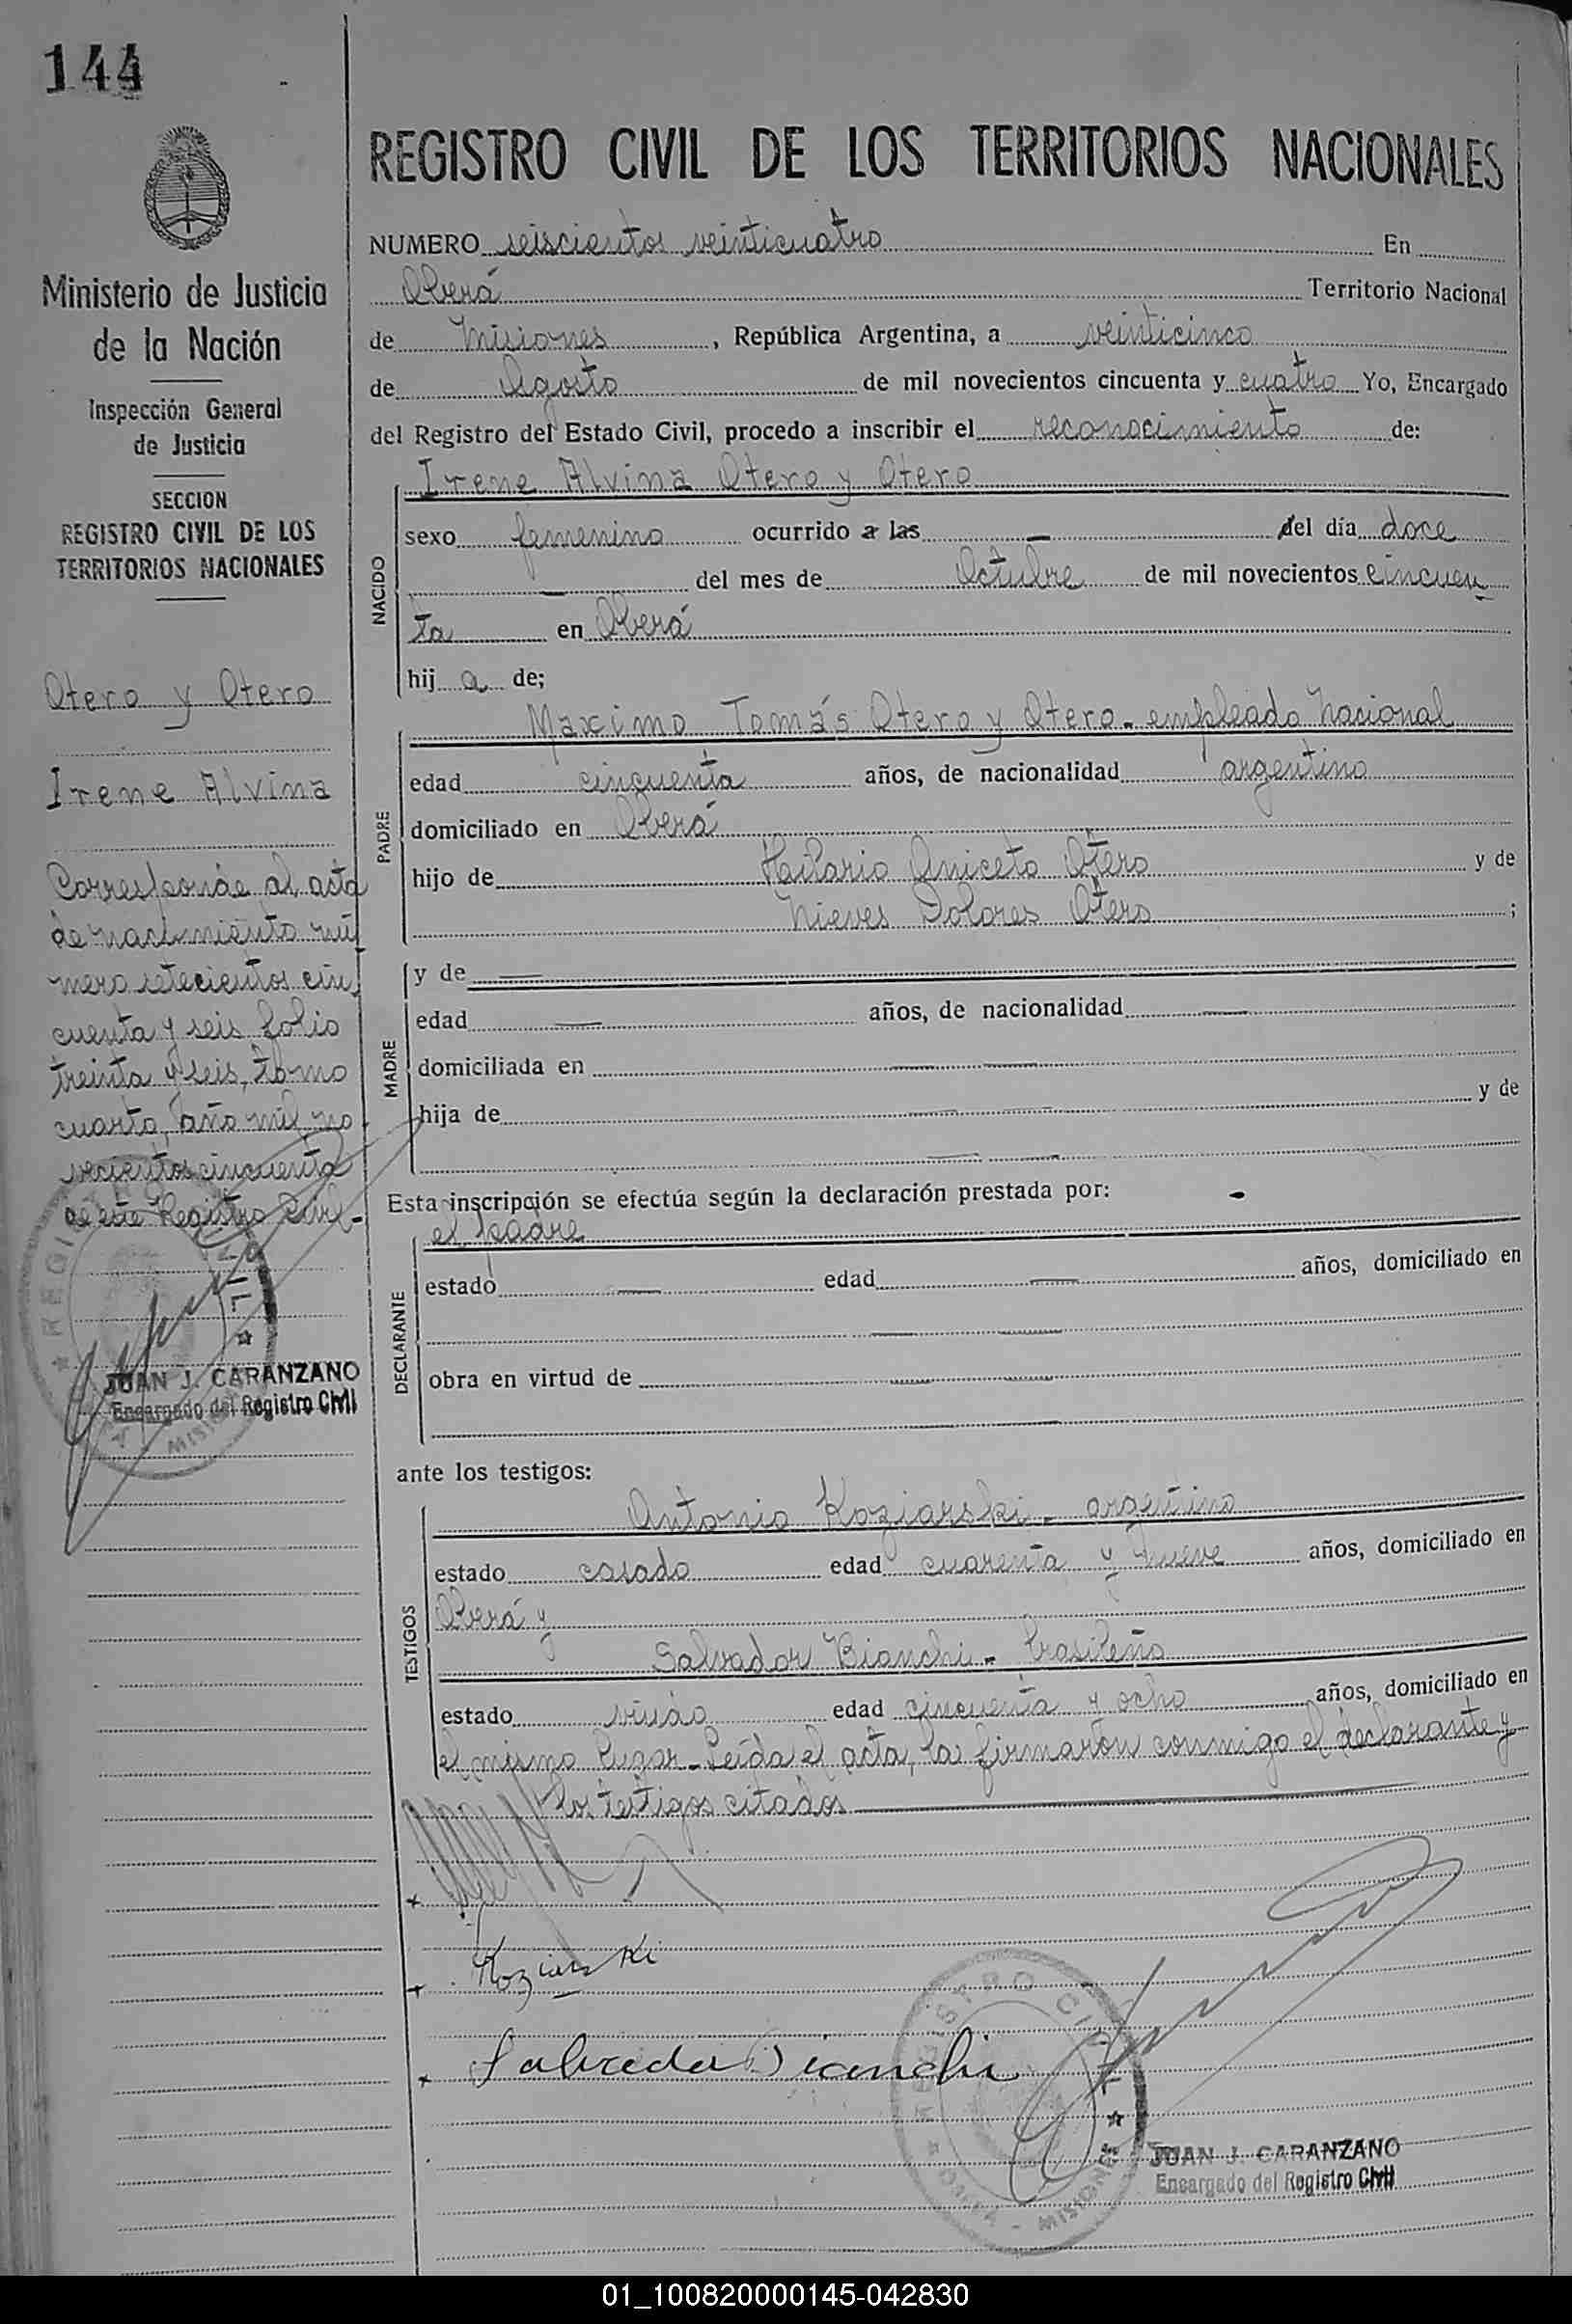 144
Ministerio de Justicia
de la Nación
Inspección General
de Justicia
SECCION
REGISTRO CIVIL DE LOS
TERRITORIOS NACIONALES
Otero y Otero
Irene Alvina
Corresponde al acta
de nacimiento nú
mero setecientos cin
cuenta y seis folio
treinta y seis, tomo
cuarto, año mil no
vecientos cincuenta
de este Registro Civil-
REGI VIL
MISI
JUAN J. CARANZANO
Encargado del Registro Civil
REGISTRO CIVIL DE LOS TERRITORIOS NACIONALES
NUMERO seiscientos veinticuatro En
Oberá Territorio Nacional
de Misiones, República Argentina, a veinticinco
de Agosto de mil novecientos cincuenta y cuatro Yo, Encargado
del Registro del Estado Civil, procedo a inscribir el reconocimiento de:
NACIDO
Irene Alvina Otero y Otero
sexo femenino ocurrido a las — del día doce
— del mes de Octubre de mil novecientos cincuen
ta en Oberá
hija de;
PADRE
Maximo Tomás Otero y Otero - empleado nacional
edad cincuenta años, de nacionalidad argentino
domiciliado en Oberá
hijo de Hilario Aniceto Otero y de
Nieves Dolores Otero;
MADRE
y de —
edad — años, de nacionalidad —
domiciliada en —
hija de — y de
—
Esta inscripción se efectúa según la declaración prestada por: -
DECLARANTE
el padre
estado — edad — años, domiciliado en
—
obra en virtud de —
—
ante los testigos:
TESTIGOS
Antonio Koziarski - argentino
estado casado edad cuarenta y nueve años, domiciliado en
Oberá y
Salvador Bianchi - brasileño
estado viudo edad cincuenta y ocho años, domiciliado en
el mismo lugar - Leída el acta, la firmaron conmigo el declarante y
los testigos citados
Koziarski
Salvador Bianchi
REGISTRO CIVIL
OBERA - MISIONES
JUAN J. CARANZANO
Encargado del Registro Civil
01_100820000145-042830